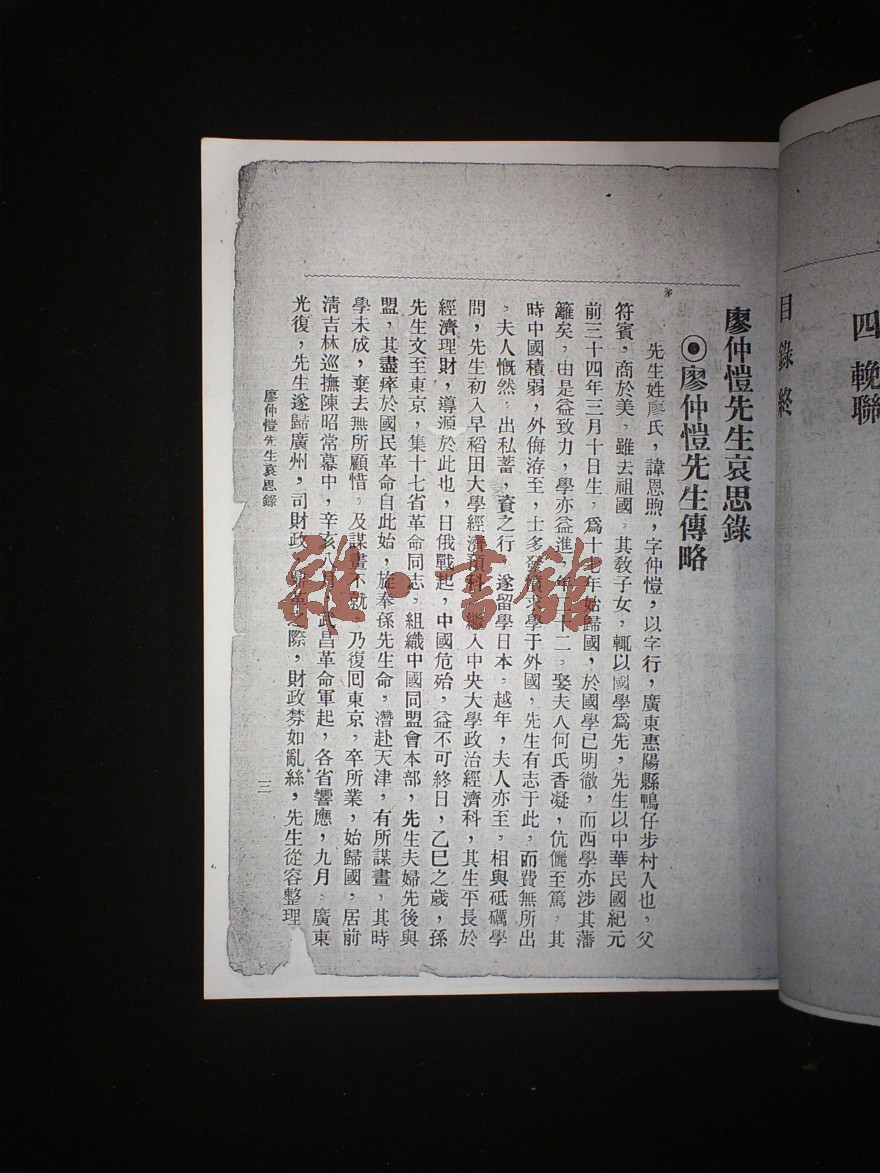 四 輓聯
目錄終
廖仲愷先生哀思錄
◉廖仲愷先生傳略
先生姓廖氏，諱恩煦，字仲愷，以字行，廣東惠陽縣鴨仔步村人也，父
符賓，商於美，雖去祖國，其敎子女，輒以國學爲先，先生以中華民國紀元
前三十四年三月十日生，爲十七年始歸國，於國學已明徹，而西學亦涉其藩
籬矣，由是益致力，學亦益進，年二十二，娶夫人何氏香凝，伉儷至篤，其
時中國積弱，外侮洊至，士多發憤求學于外國，先生有志于此，而費無所出
，夫人慨然，出私蓄，資之行，遂留學日本，越年，夫人亦至，相與砥礪學
問，先生初入早稻田大學經濟預科，繼入中央大學政治經濟科，其生平長於
經濟理財，導源於此也，日俄戰起，中國危殆，益不可終日，乙巳之歲，孫
先生文至東京，集十七省革命同志，組織中國同盟會本部，先生夫婦先後與
盟，其盡瘁於國民革命自此始，旋奉孫先生命，潛赴天津，有所謀畫，其時
學未成，棄去無所顧惜，及謀畫不就，乃復囘東京，卒所業，始歸國，居前
淸吉林巡撫陳昭常幕中，辛亥八月，武昌革命軍起，各省響應，九月，廣東
光復，先生遂歸廣州，司財政，之際，財政棼如亂絲，先生從容整理
廖仲愷先生哀思錄
三
雜·書館